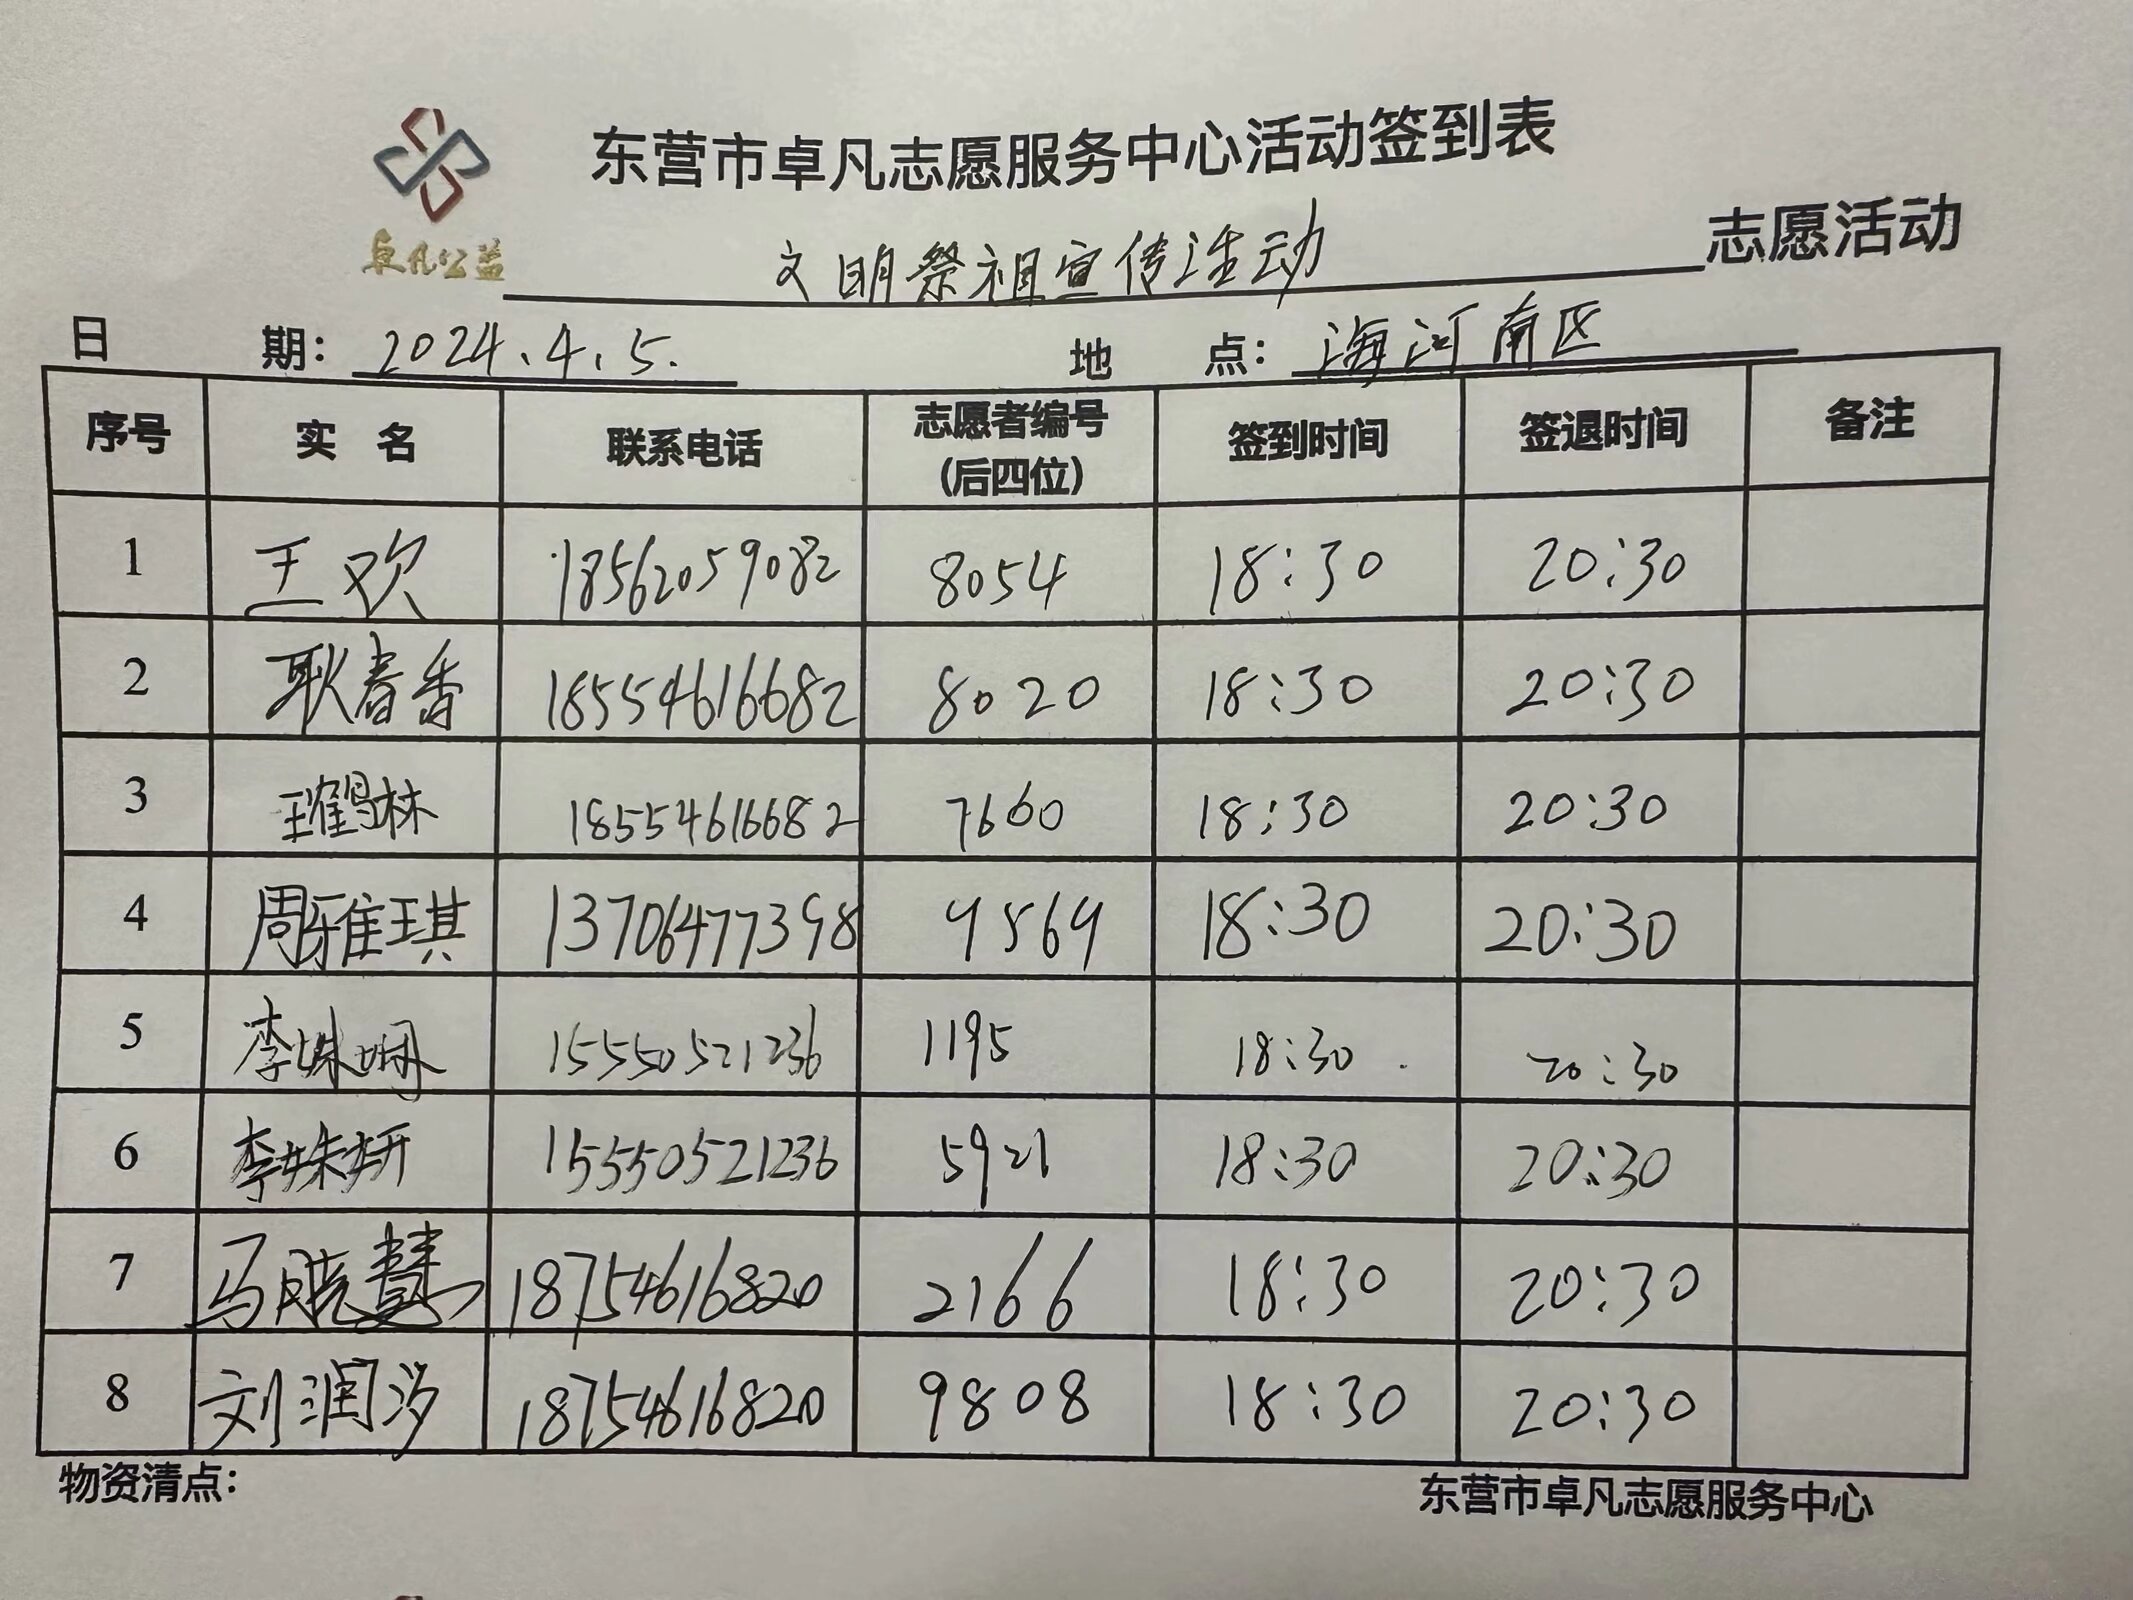 东营市卓凡志愿服务中心活动签到表
卓凡公益
文明祭祖宣传活动 志愿活动
日 期： 2024.4.5. 地 点： 海河南区
序号 实 名 联系电话 志愿者编号 (后四位) 签到时间 签退时间 备注
1 王欢 18562059082 8054 18:30 20:30
2 耿春香 18554616682 8020 18:30 20:30
3 王鹤林 18554616682 7660 18:30 20:30
4 周雅琪 13706477398 9569 18:30 20:30
5 李姝 15550521236 1195 18:30 20:30
6 李姝妍 15550521236 5921 18:30 20:30
7 马晓慧 18754616820 2166 18:30 20:30
8 刘润汐 18754616820 9808 18:30 20:30
物资清点： 东营市卓凡志愿服务中心